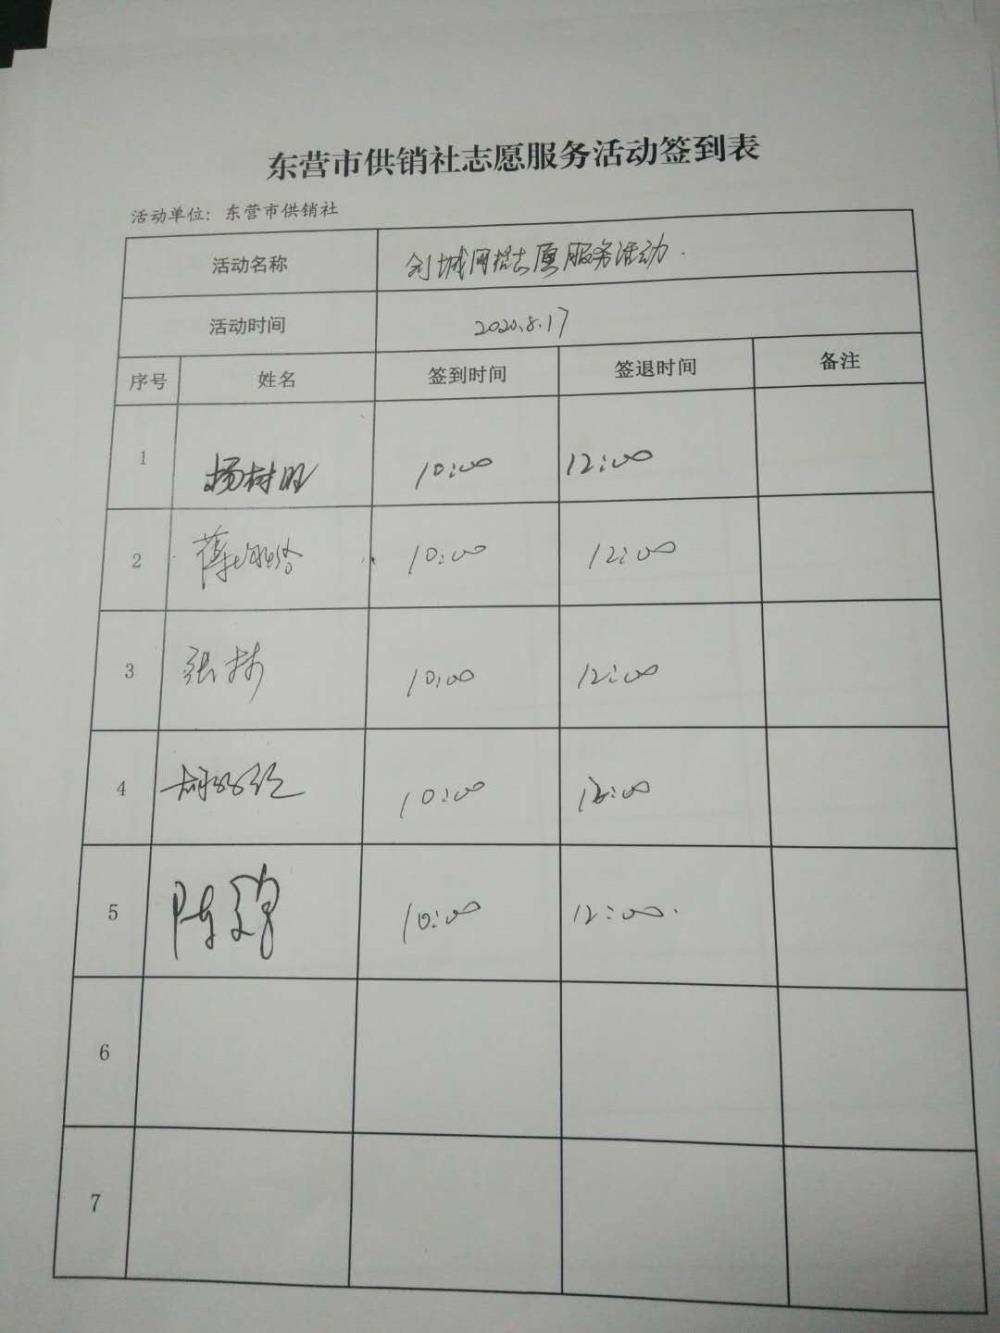 东营市供销社志愿服务活动签到表
活动单位：东营市供销社
活动名称 创城网格志愿服务活动.
活动时间 2020.8.17
序号 姓名 签到时间 签退时间 备注
1 杨树 10:00 12:00
2 薄 10:00 12:00
3 张 10:00 12:00
4 胡 10:00 12:00
5 陈 10:00 12:00.
6
7